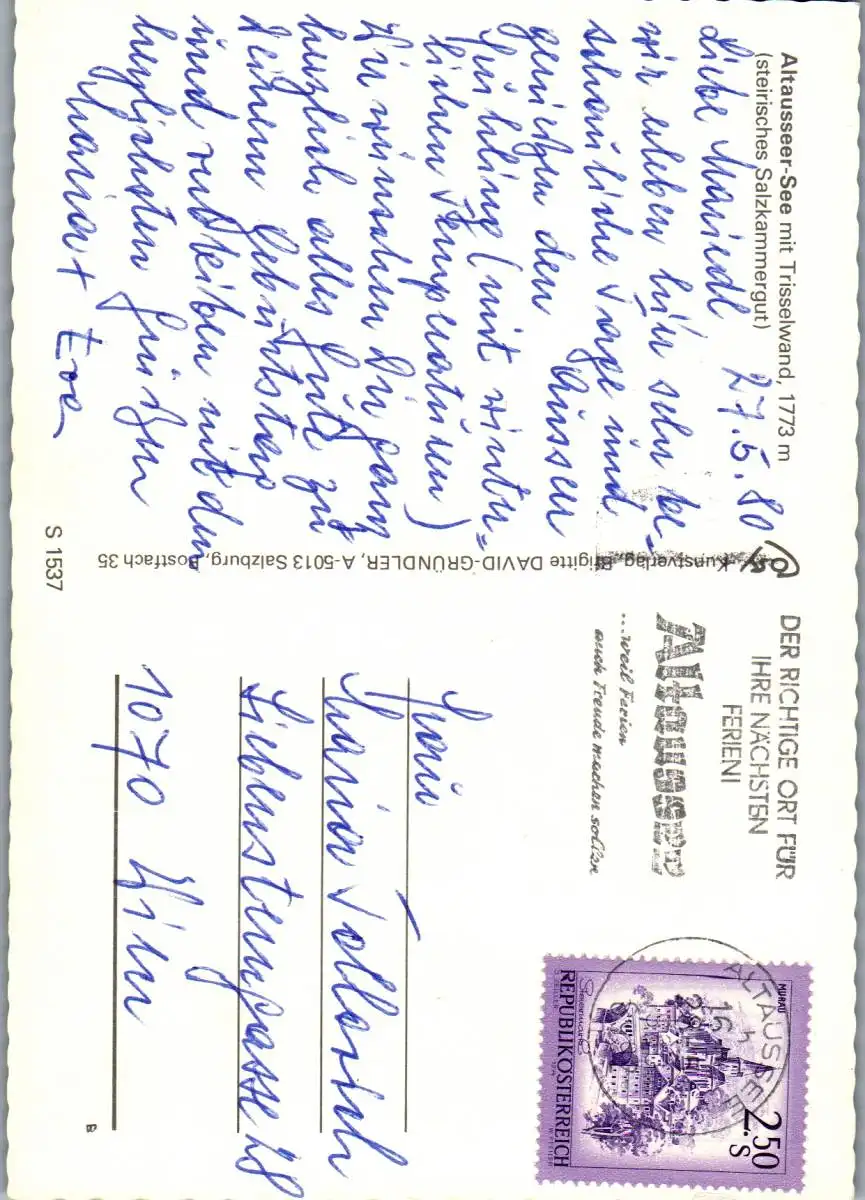 Altausseer-See mit Trisselwand, 1773 m
(steirisches Salzkammergut)
27.5.80
Liebe Mariedl
wir erleben hier sehr be=
schauliche Tage und
genießen den Ausseer
Frühling (mit winter=
lichen Temperaturen)
Wir wünschen Dir ganz
herzlich alles Gute zu
Deinem Geburtstag
und verbleiben mit den
herzlichsten Grüßen
Maria + Eva
S 1537
Kunstverlag Brigitte DAVID-GRÜNDLER, A-5013 Salzburg, Postfach 35
DER RICHTIGE ORT FÜR
IHRE NÄCHSTEN
FERIEN!
Altaussee
...weil Ferien
auch Freude machen sollen
ALTAUSSEE
16
MURAU
2.50
S
REPUBLIK ÖSTERREICH
Frau
Maria
Siebensterngasse 28
1070 Wien